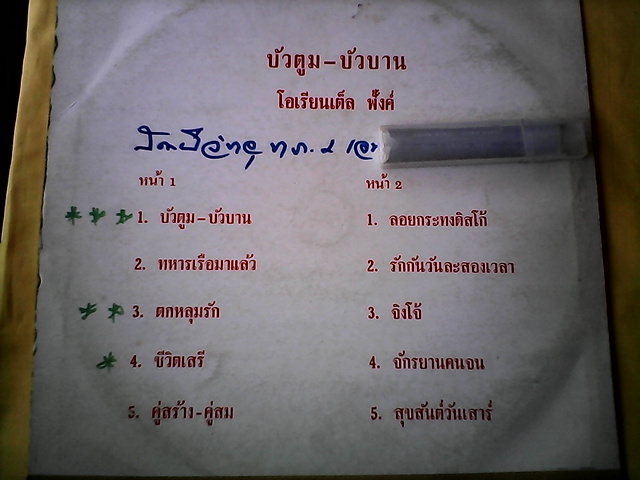 บัวตูม-บัวบาน
โอเรียนเต็ล ฟั้งค์
หน้า 1
หน้า 2
1. บัวตูม-บัวบาน
1. ลอยกระทงดิสโก้
2. ทหารเรือมาแล้ว
2. รักกันวันละสองเวลา
3. ตกหลุมรัก
3. จิงโจ้
4. ชีวิตเสรี
4. จักรยานคนจน
5. คู่สร้าง-คู่สม
5. สุขสันต์วันเสาร์